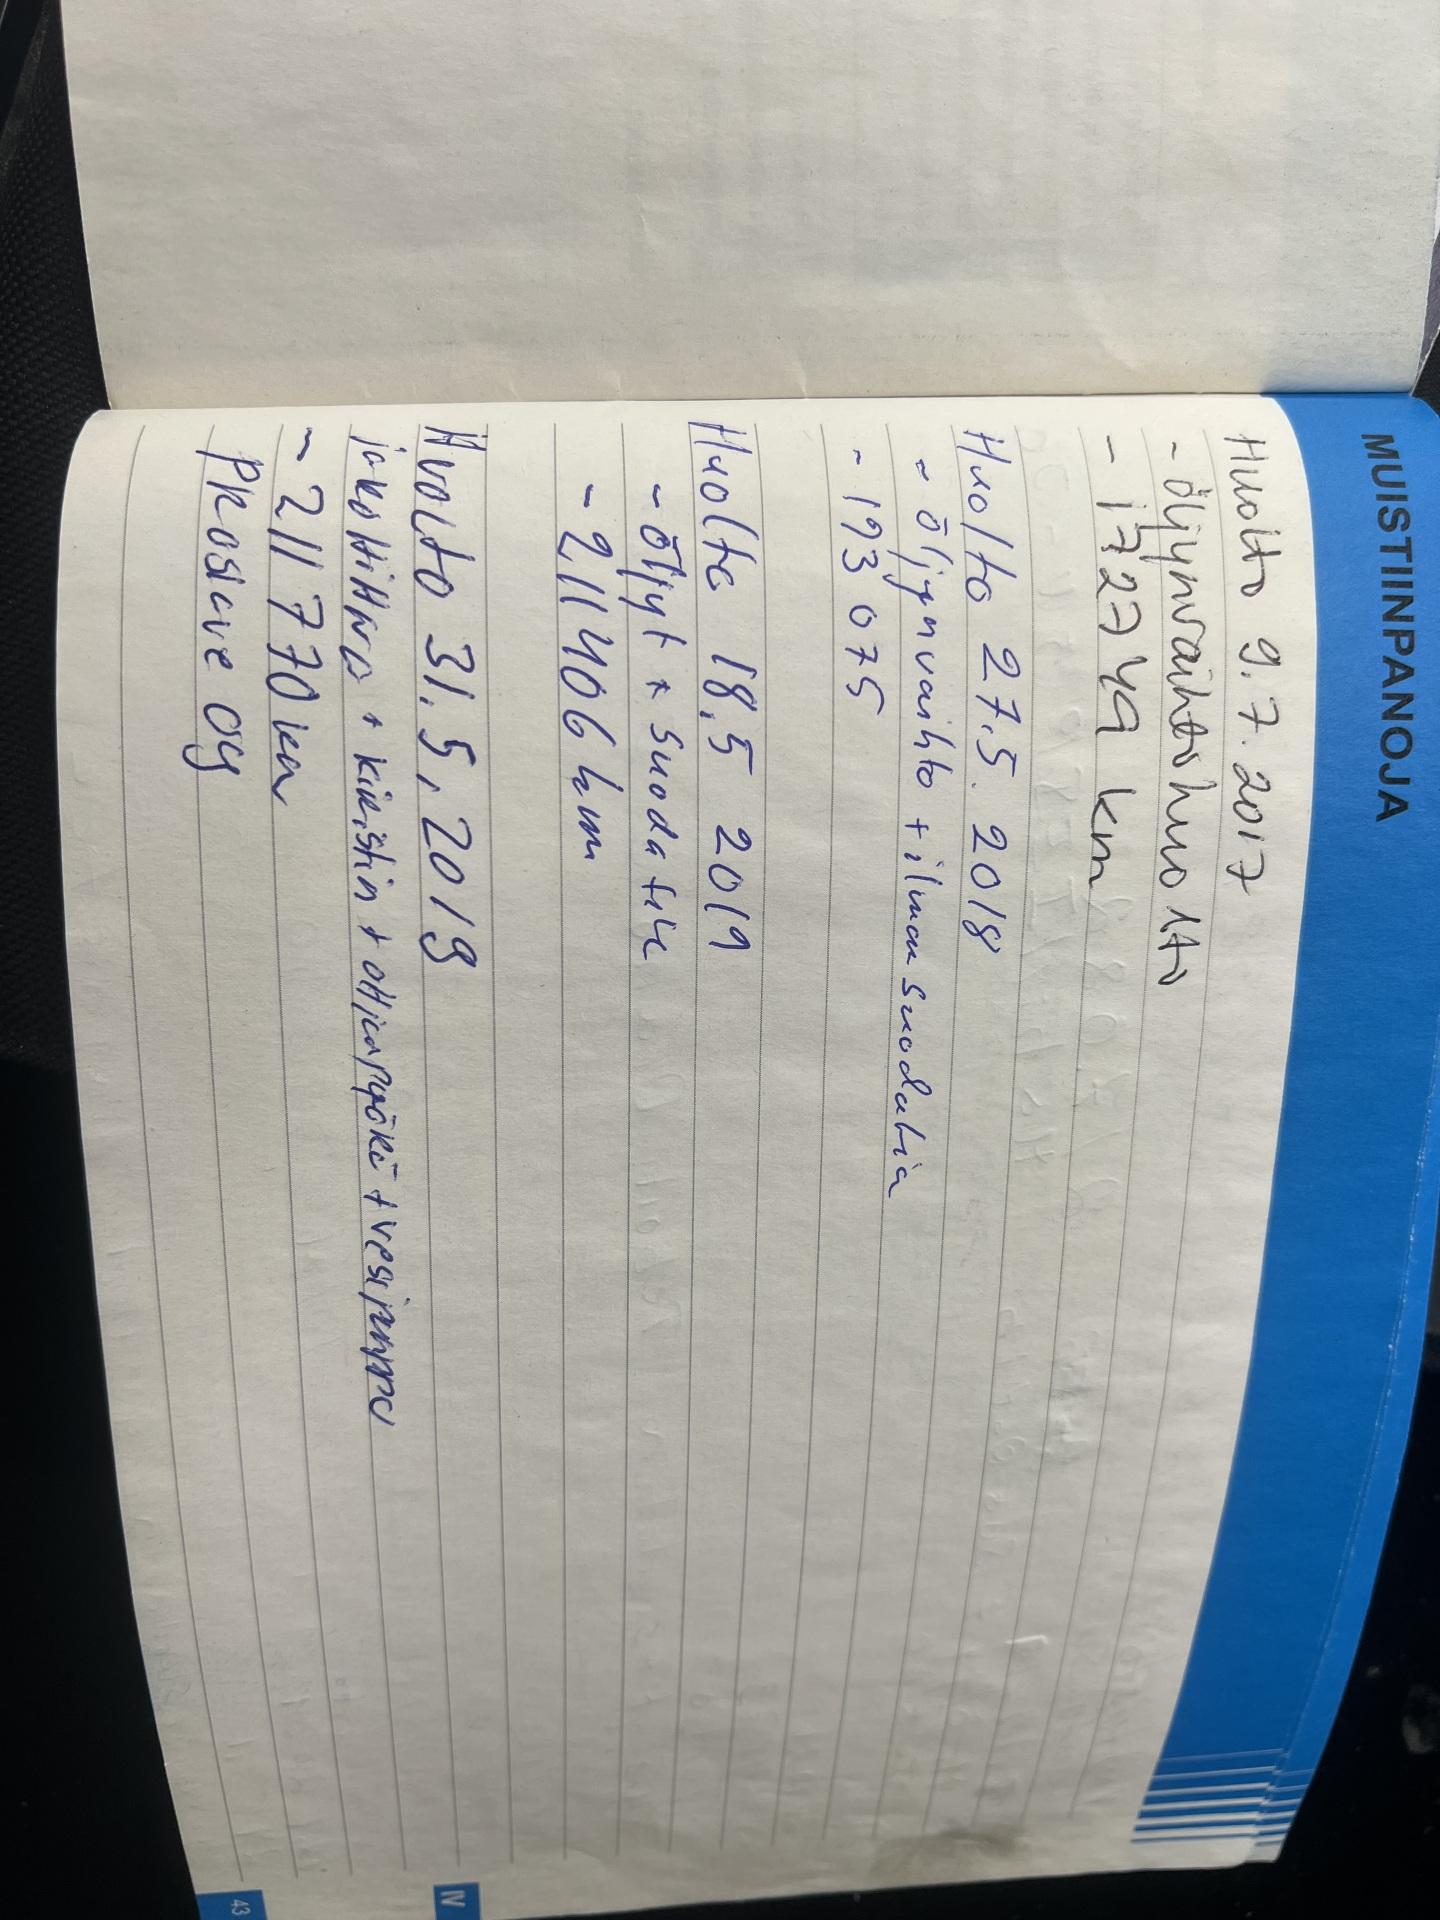 MUISTIINPANOJA
Huolto 9.7.2017
- öljynvaihtohuolto
- 172749 km
Huolto 27.5.2018
- öljynvaihto + ilmansuodatin
- 193 075
Huolto 18.5 2019
- öljyt + suodatin
- 211406 km
Huolto 31.5.2019
jakohihna + kiristin + ohjainpyörä + vesipumppu
- 211770 km
IV
43